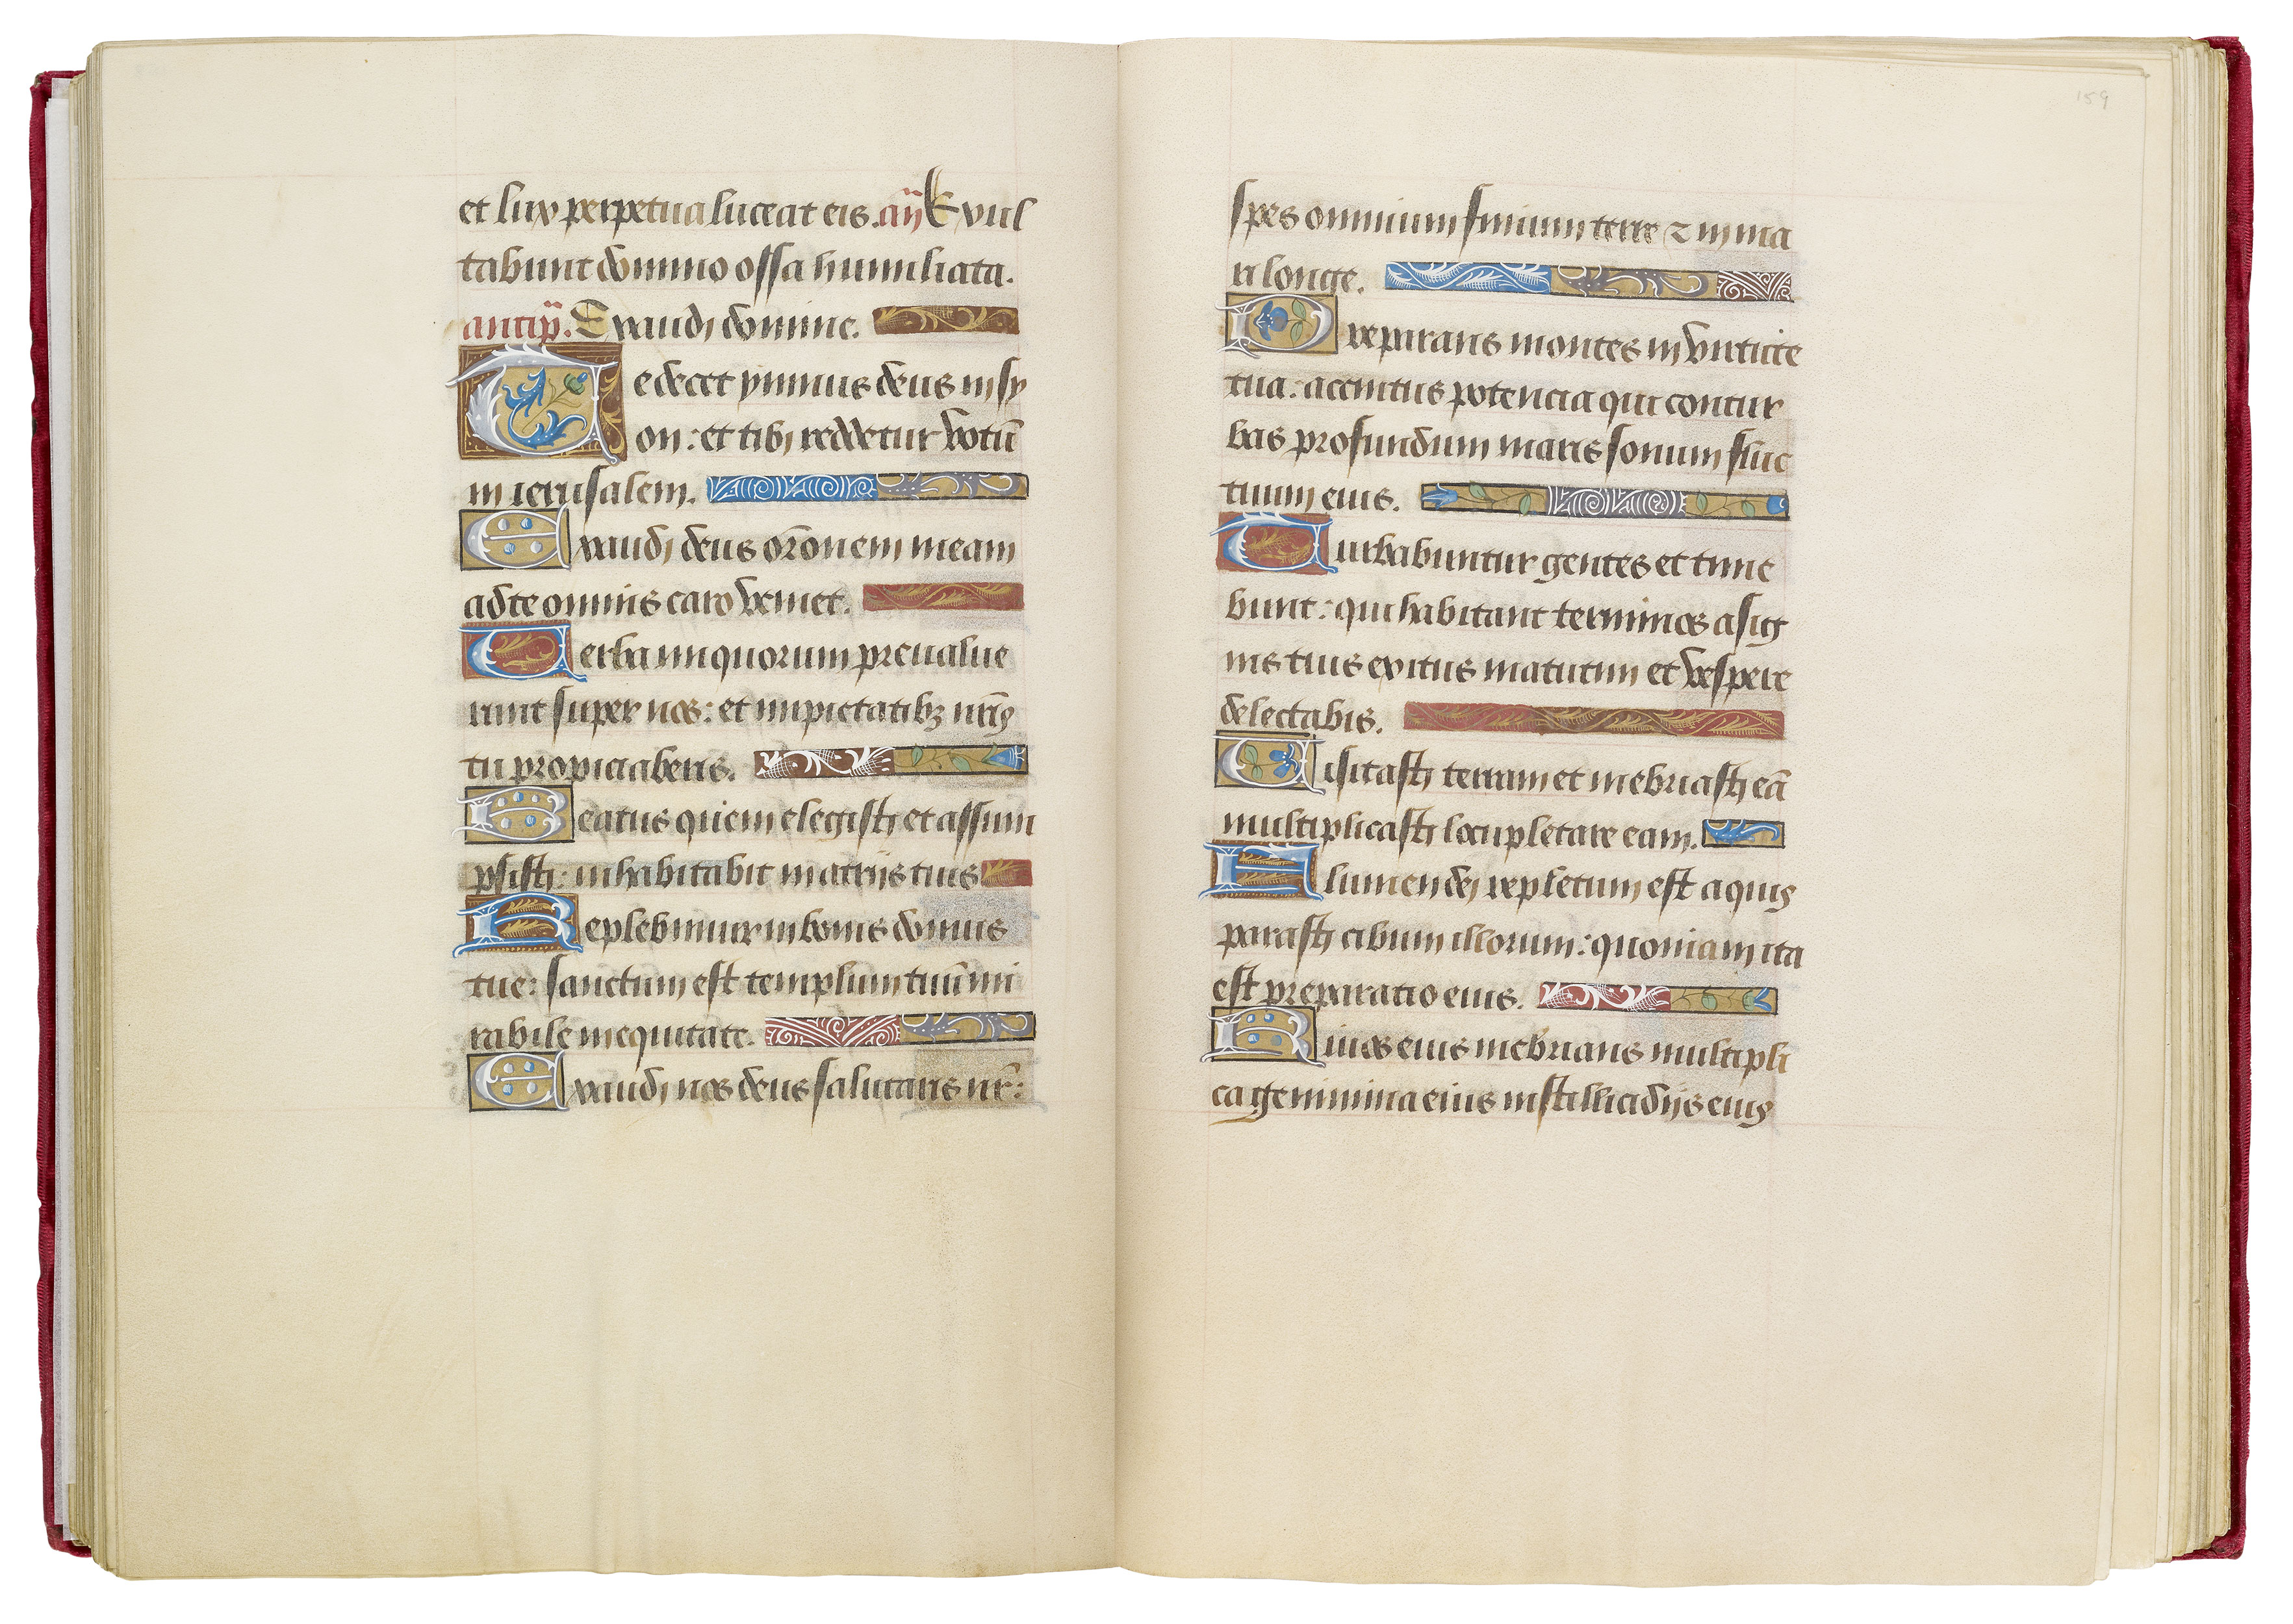 et lux perpetua luceat eis. añ Exul
tabunt domino ossa humiliata.
antip̄. Exaudi domine.
Te decet ymnus deus in sy
on: et tibi reddetur votū
in ierusalem.
Exaudi deus orōnem meam
ad te omnis caro veniet.
Verba iniquorum preualue
runt super nos: et impietatibꝫ nr̄is
tu propiciaberis.
Beatus quem elegisti et assum
psisti: inhabitabit in atrijs tuis
Replebimur in bonis domus
tue: sanctum est templum tuū mi
rabile in equitate.
Exaudi nos deus salutaris nr̄:
159
spes omnium finium terre ⁊ in ma
ri longe.
Preparans montes in virtute
tua: accintus potencia qui contur
bas profundum maris sonum fluc
tuum eius.
Turbabuntur gentes et time
bunt: qui habitant terminos a sig
nis tuis exitus matutini et vespere
delectabis.
Visitasti terram et inebriasti eā
multiplicasti locupletare eam.
Flumen dei repletum est aquis
parasti cibum illorum: quoniam ita
est preparatio eius.
Riuos eius inebrians multipli
ca genimina eius in stillicidijs eius